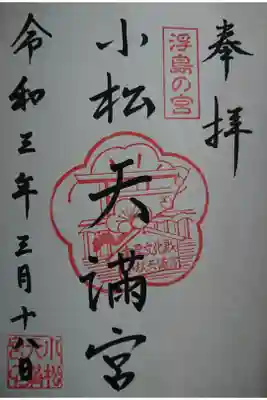 奉拝
浮島の宮
小松天満宮
令和三年三月十八日